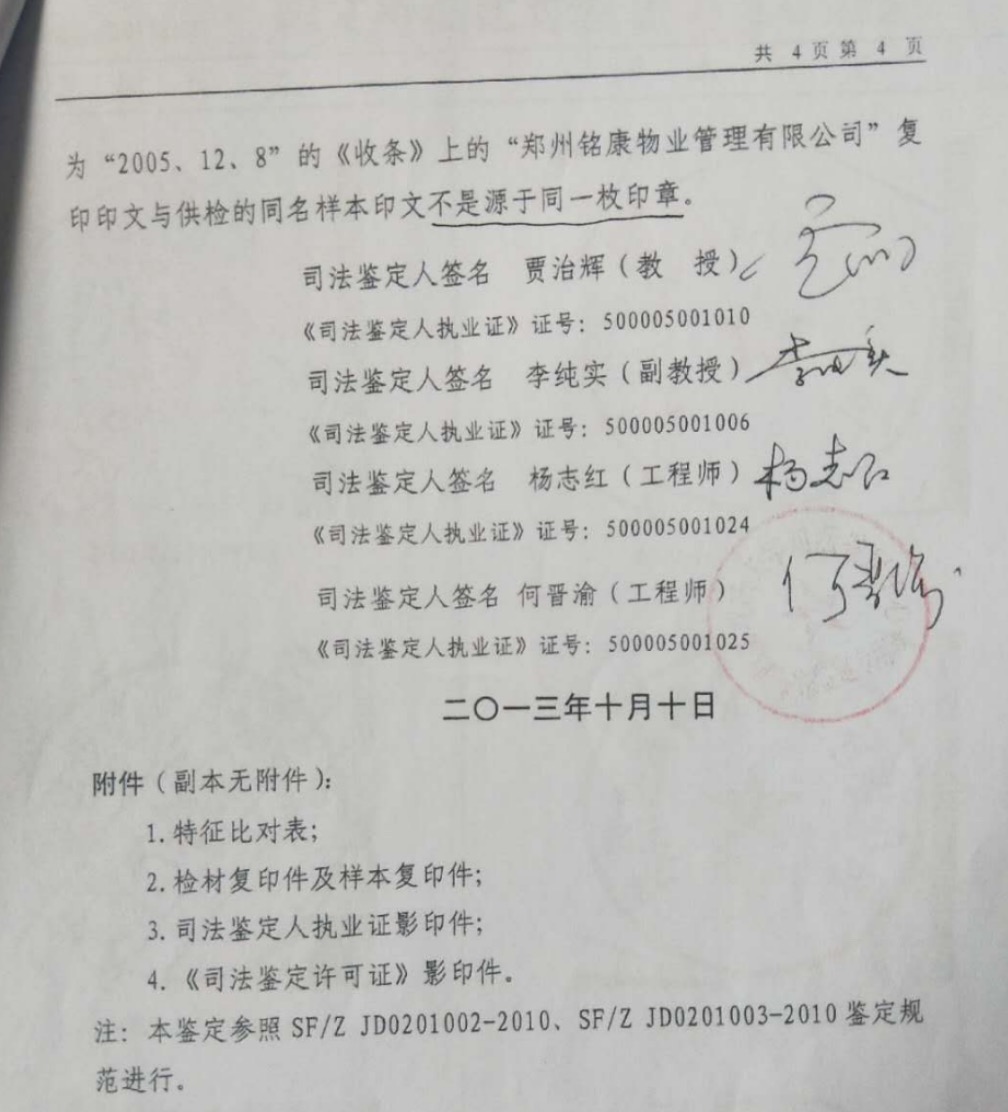 共 4 页第 4 页
为“2005、12、8”的《收条》上的“郑州铭康物业管理有限公司”复
印印文与供检的同名样本印文不是源于同一枚印章。
司法鉴定人签名 贾治辉（教 授）
《司法鉴定人执业证》证号：500005001010
司法鉴定人签名 李纯实（副教授）李纯实
《司法鉴定人执业证》证号：500005001006
司法鉴定人签名 杨志红（工程师）杨志红
《司法鉴定人执业证》证号：500005001024
司法鉴定人签名 何晋渝（工程师）何晋渝
《司法鉴定人执业证》证号：500005001025
二〇一三年十月十日
附件（副本无附件）：
1.特征比对表；
2.检材复印件及样本复印件；
3.司法鉴定人执业证影印件；
4.《司法鉴定许可证》影印件。
注：本鉴定参照 SF/Z JD0201002-2010、SF/Z JD0201003-2010 鉴定规
范进行。